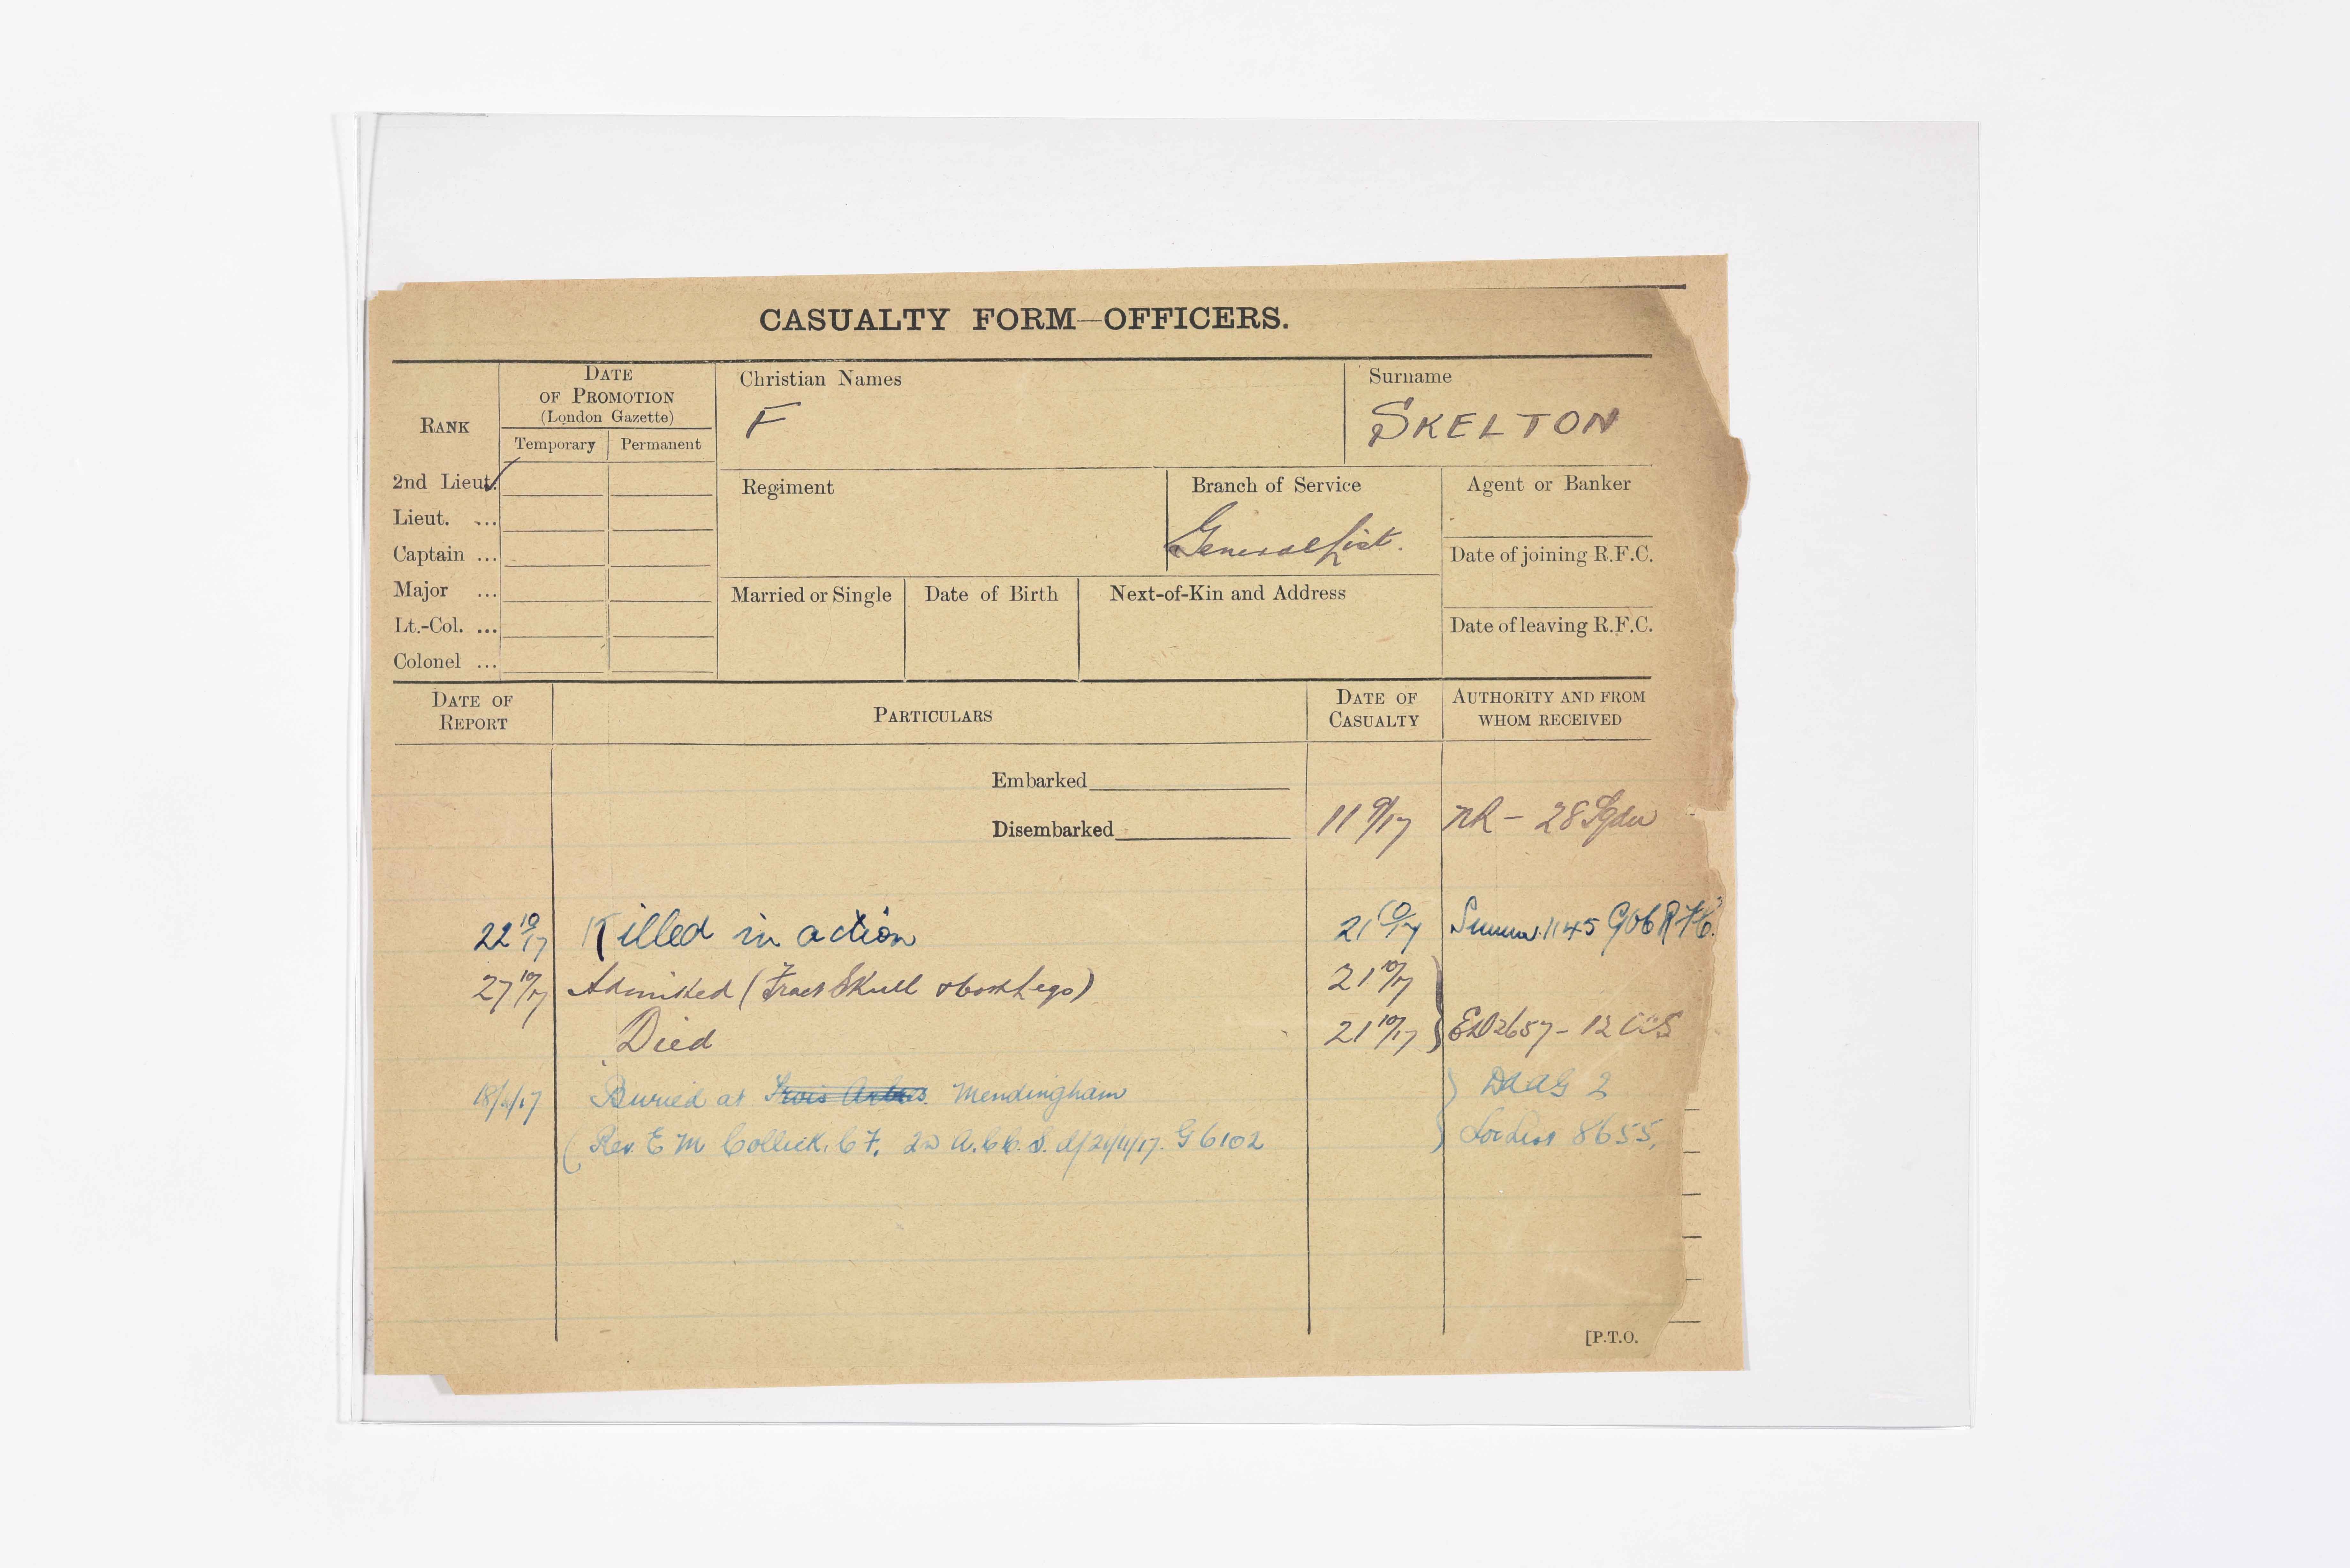 CASUALTY FORM—OFFICERS.
RANK
DATE OF PROMOTION (London Gazette)
Temporary Permanent
Christian Names
F
Surname
SKELTON
2nd Lieut. ✓
Lieut. ...
Captain ...
Major ...
Lt.-Col. ...
Colonel ...
Regiment
Branch of Service
General List.
Agent or Banker
Date of joining R.F.C.
Date of leaving R.F.C.
Married or Single
Date of Birth
Next-of-Kin and Address
DATE OF REPORT
PARTICULARS
DATE OF CASUALTY
AUTHORITY AND FROM WHOM RECEIVED
Embarked
Disembarked 11 9/17 28 Sqdn
22 10/17 Killed in action 21 10/17 1145 R F C.
27 10/17 Admitted (Fract Skull & both Legs) 21 10/17
Died 21 10/17 ED2657 - 12 CCS
Buried at Trois Arbres. Mendingham DAAG 2
(Rev. E M Collick. C F. d/21/11/17. G 6102 8655.
[P.T.O.